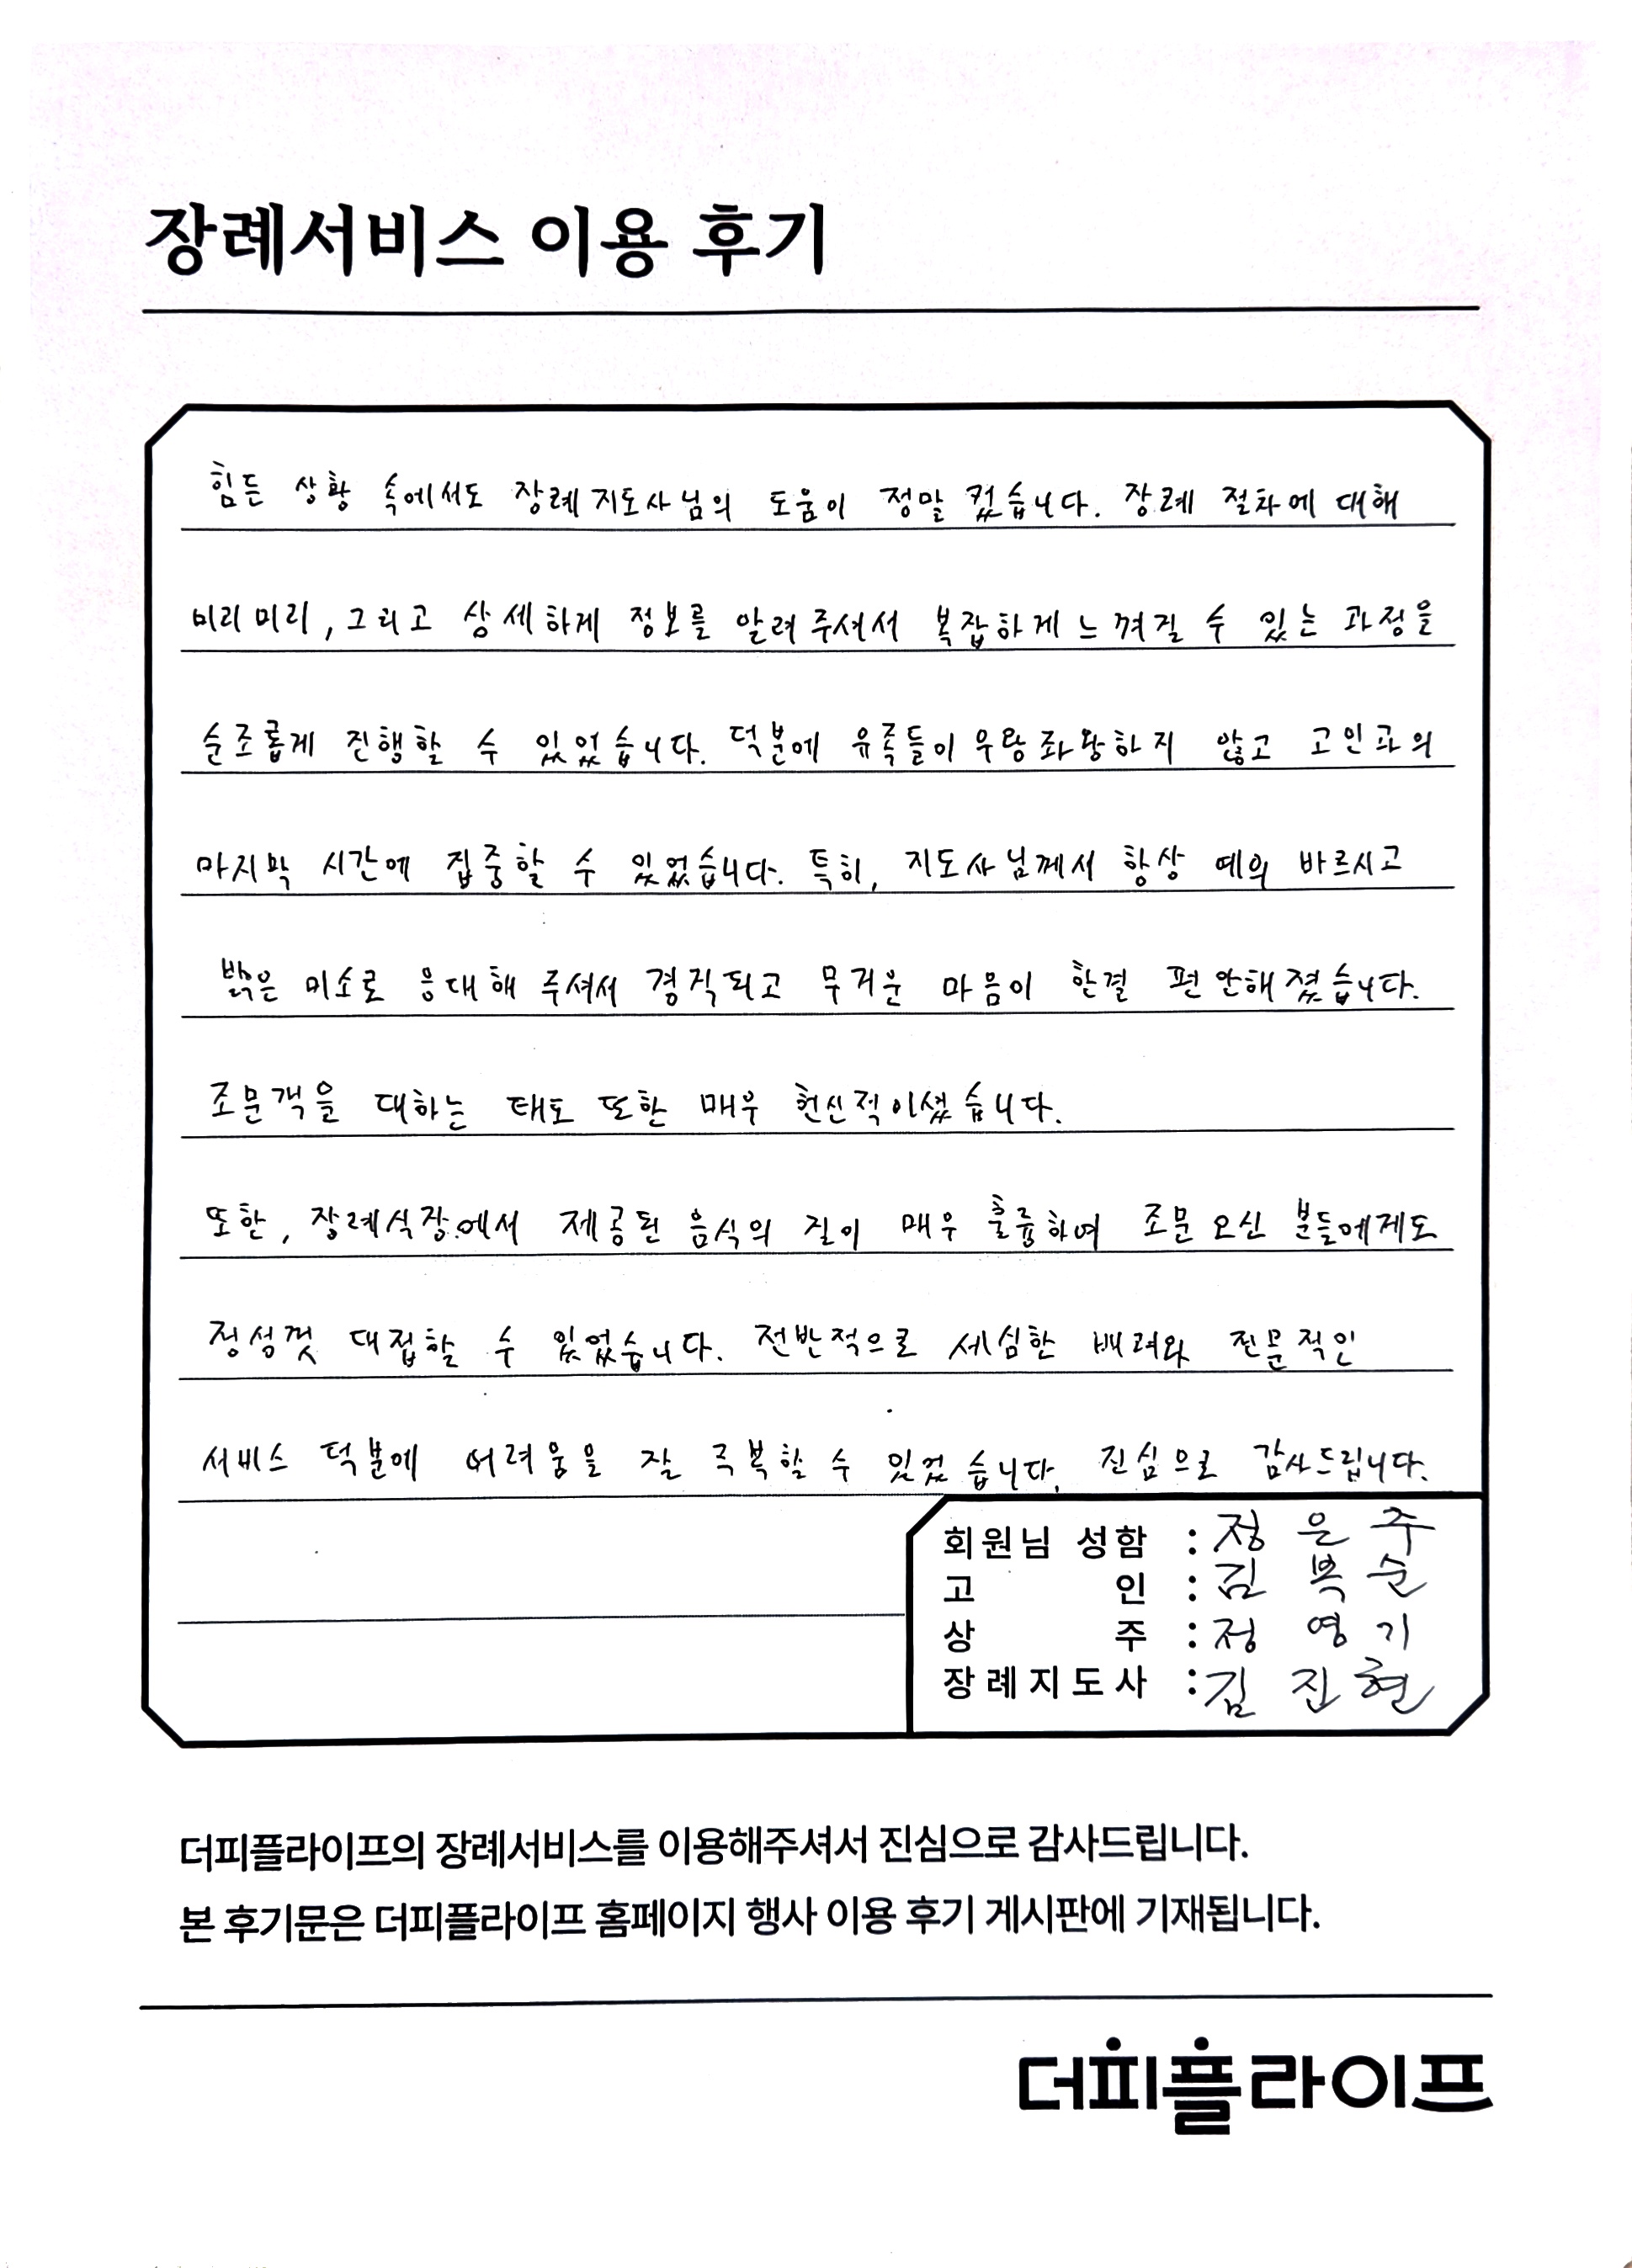 장례서비스 이용 후기
힘든 상황 속에서도 장례지도사님의 도움이 정말 컸습니다. 장례 절차에 대해
미리미리, 그리고 상세하게 정보를 알려주셔서 복잡하게 느껴질 수 있는 과정을
순조롭게 진행할 수 있었습니다. 덕분에 유족들이 우왕좌왕하지 않고 고인과의
마지막 시간에 집중할 수 있었습니다. 특히, 지도사님께서 항상 예의 바르시고
밝은 미소로 응대해 주셔서 경직되고 무거운 마음이 한결 편안해졌습니다.
조문객을 대하는 태도 또한 매우 헌신적이셨습니다.
또한, 장례식장에서 제공된 음식의 질이 매우 훌륭하여 조문 오신 분들에게도
정성껏 대접할 수 있었습니다. 전반적으로 세심한 배려와 전문적인
서비스 덕분에 어려움을 잘 극복할 수 있었습니다. 진심으로 감사드립니다.
회원님 성함 : 정은주
고 인 : 김복순
상 주 : 정영기
장례지도사 : 김진현
더피플라이프의 장례서비스를 이용해주셔서 진심으로 감사드립니다.
본 후기문은 더피플라이프 홈페이지 행사 이용 후기 게시판에 기재됩니다.
더피플라이프